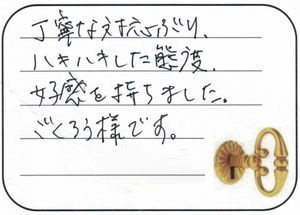 丁寧な対応ぶり、
ハキハキした態度、
好感を持ちました。
ごくろう様です。